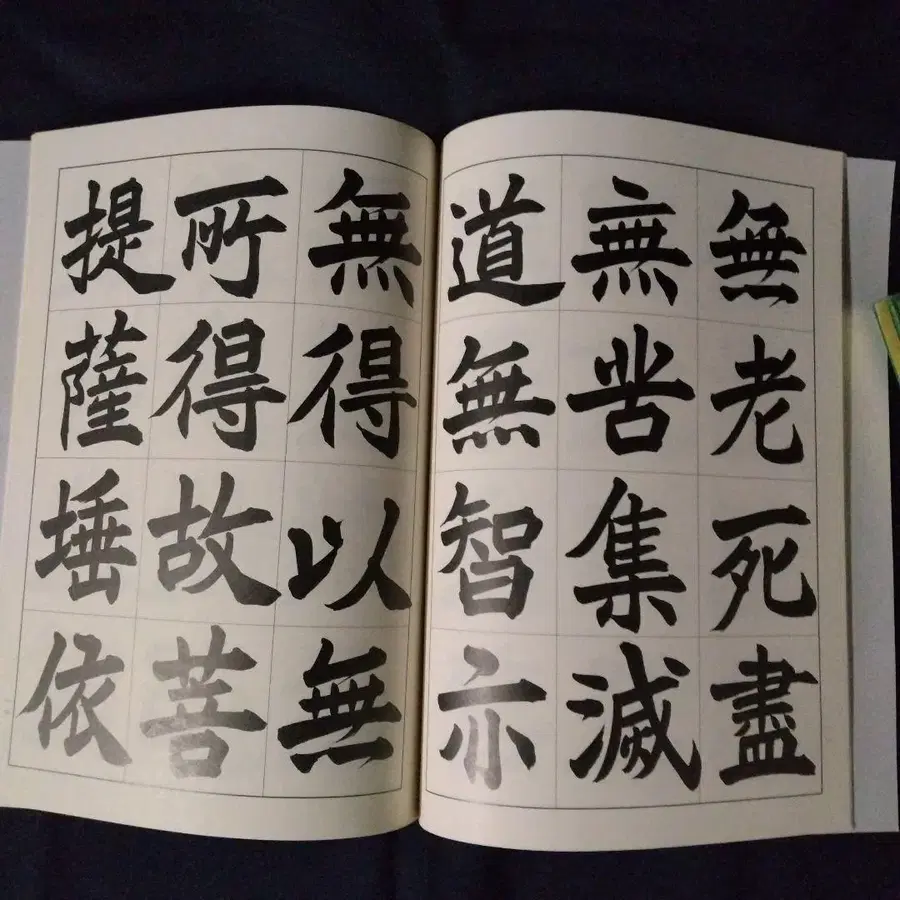 無老死盡
無苦集滅
道無智亦
無得以無
所得故菩
提薩埵依